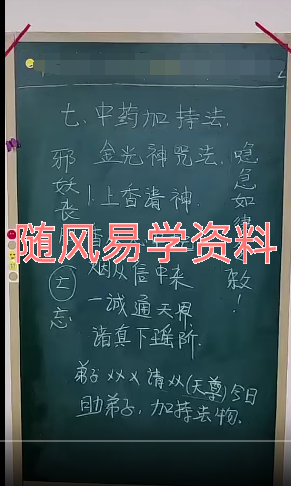 七.中药加持法.
金光神咒法.
1.上香请神.
随风易学资料
烟从信中来
一诚通天界
诸真下瑶阶.
弟子×××请××(天尊)今日
助弟子,加持法物.
邪妖丧
亡 忘
急如律
敕!